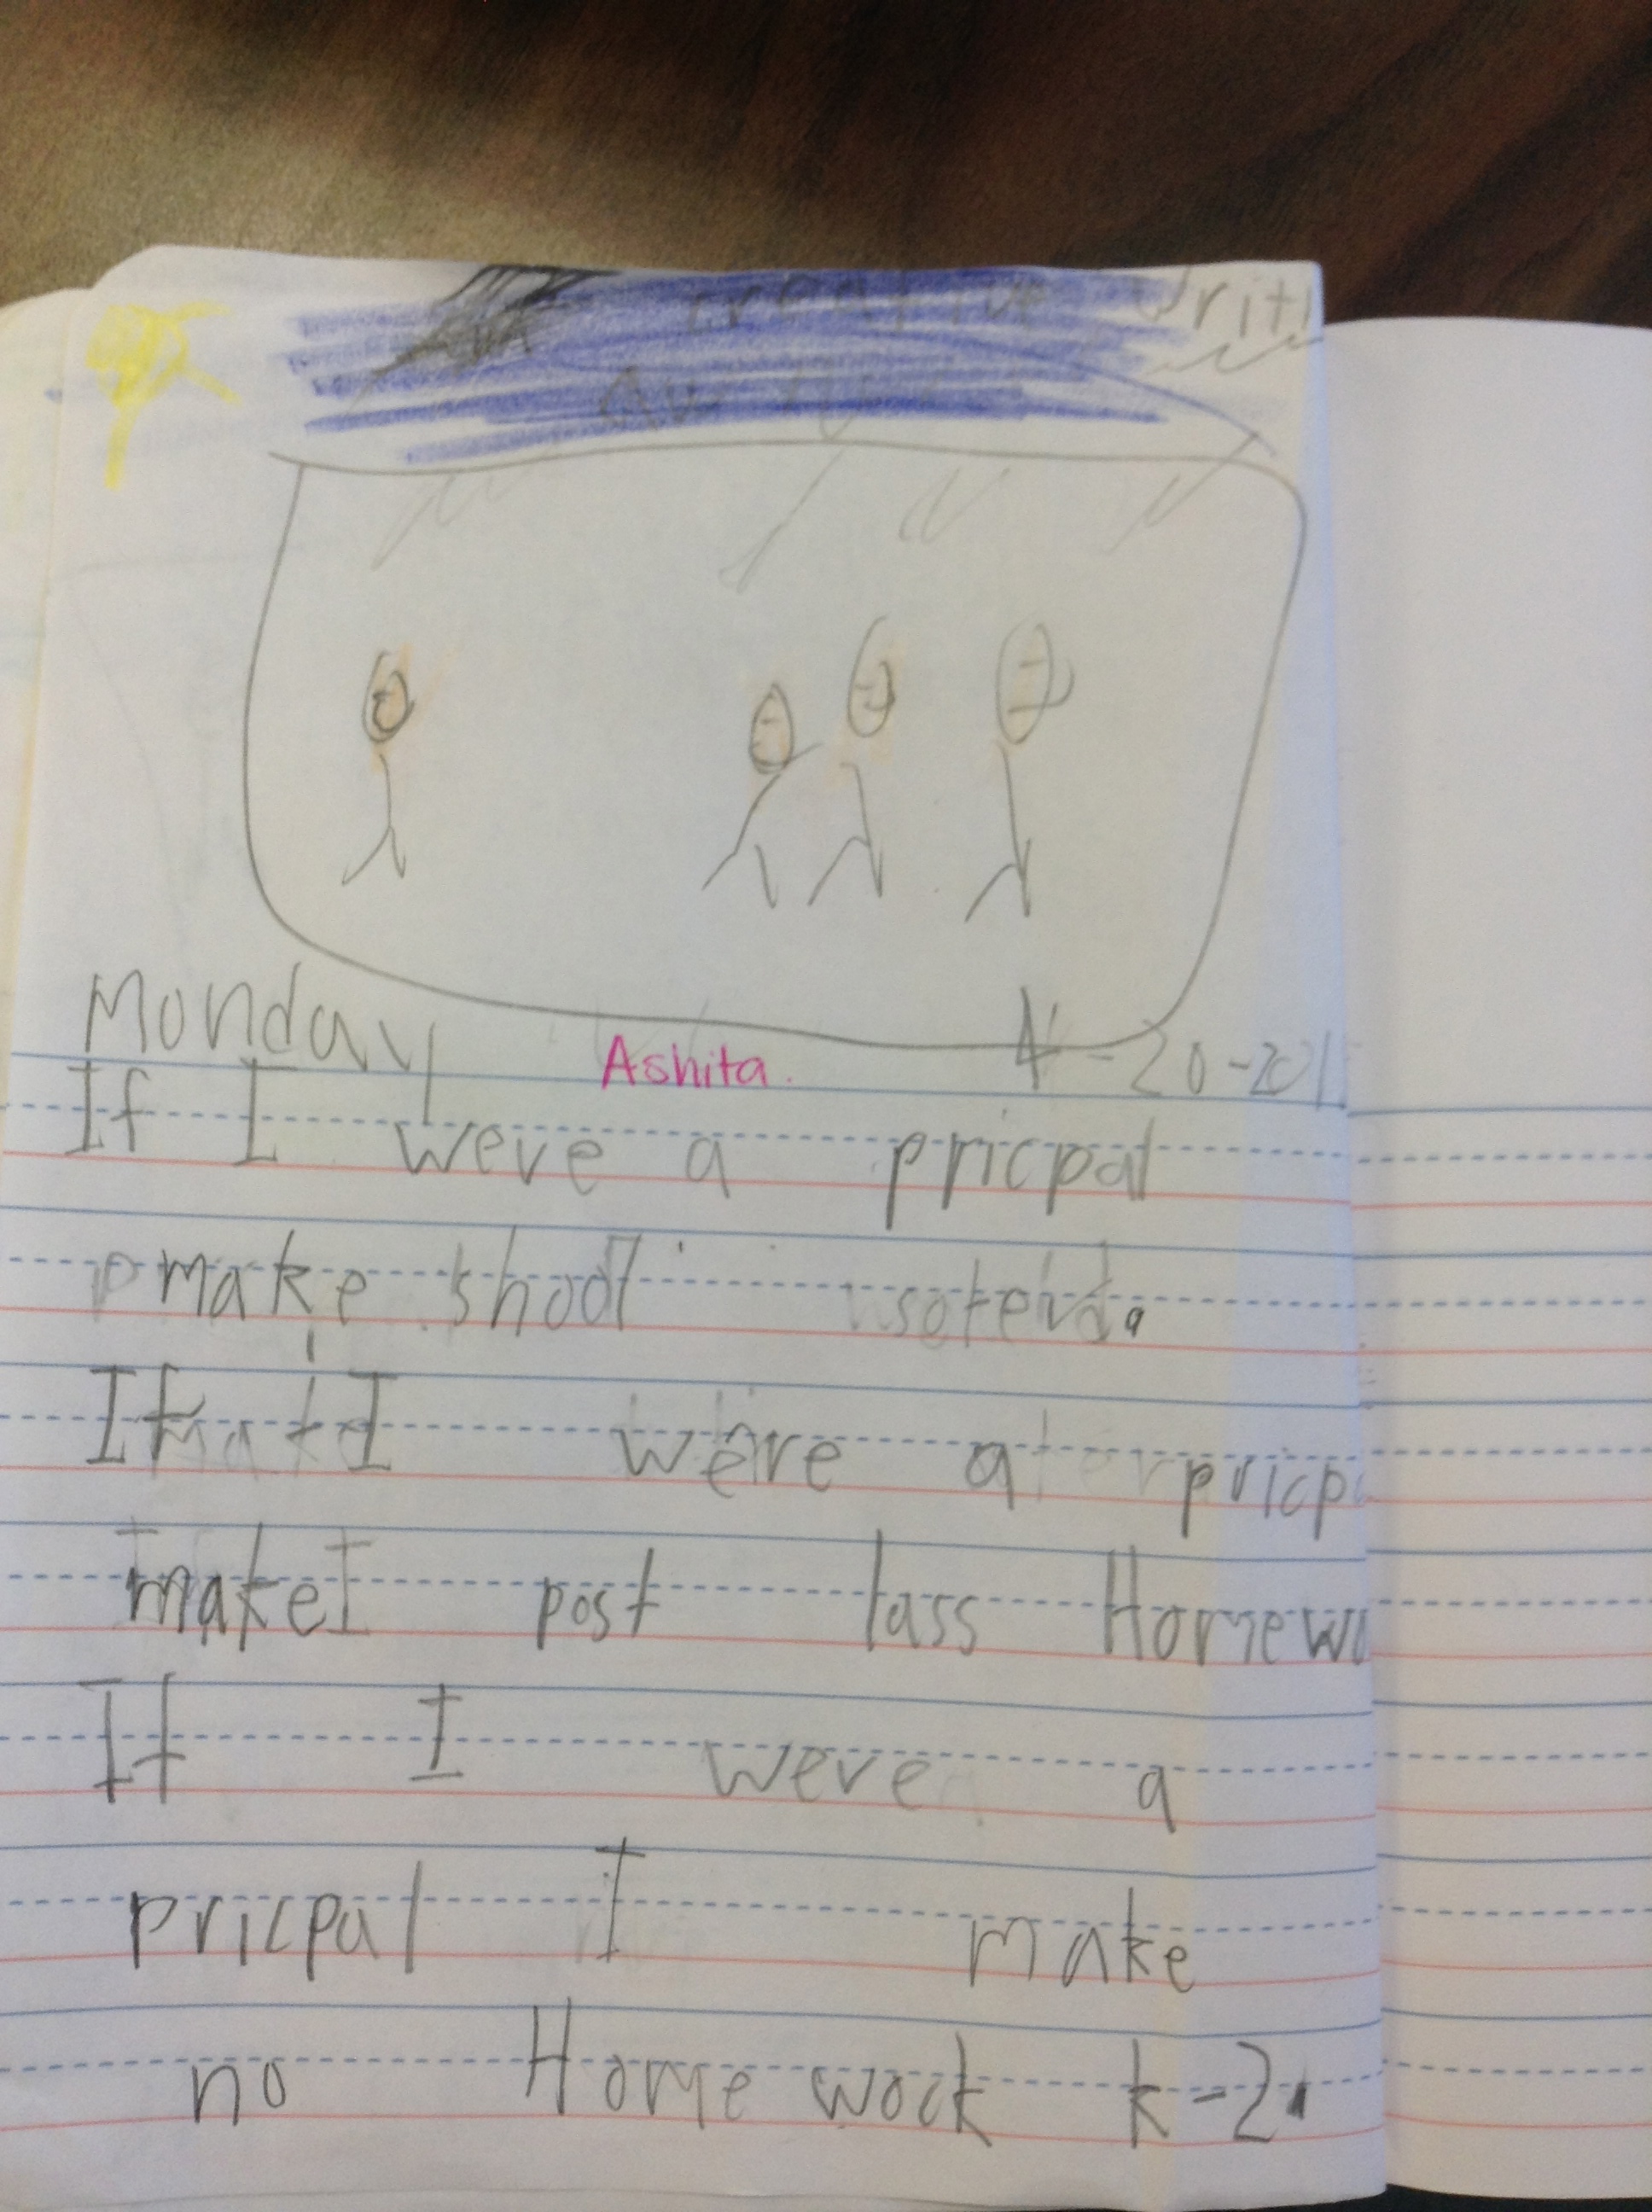 Creative Writi
Monday
Ashita.
4-20-201
If I were a pricpal
make shool
If I were a pricp
make I post lass Homewo
If I were a
pricpal I make
no Homework k-2.